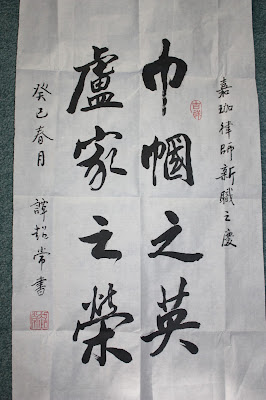 嘉珈律師新職之慶
巾幗之英
盧家之榮
癸巳春月 譚超常書